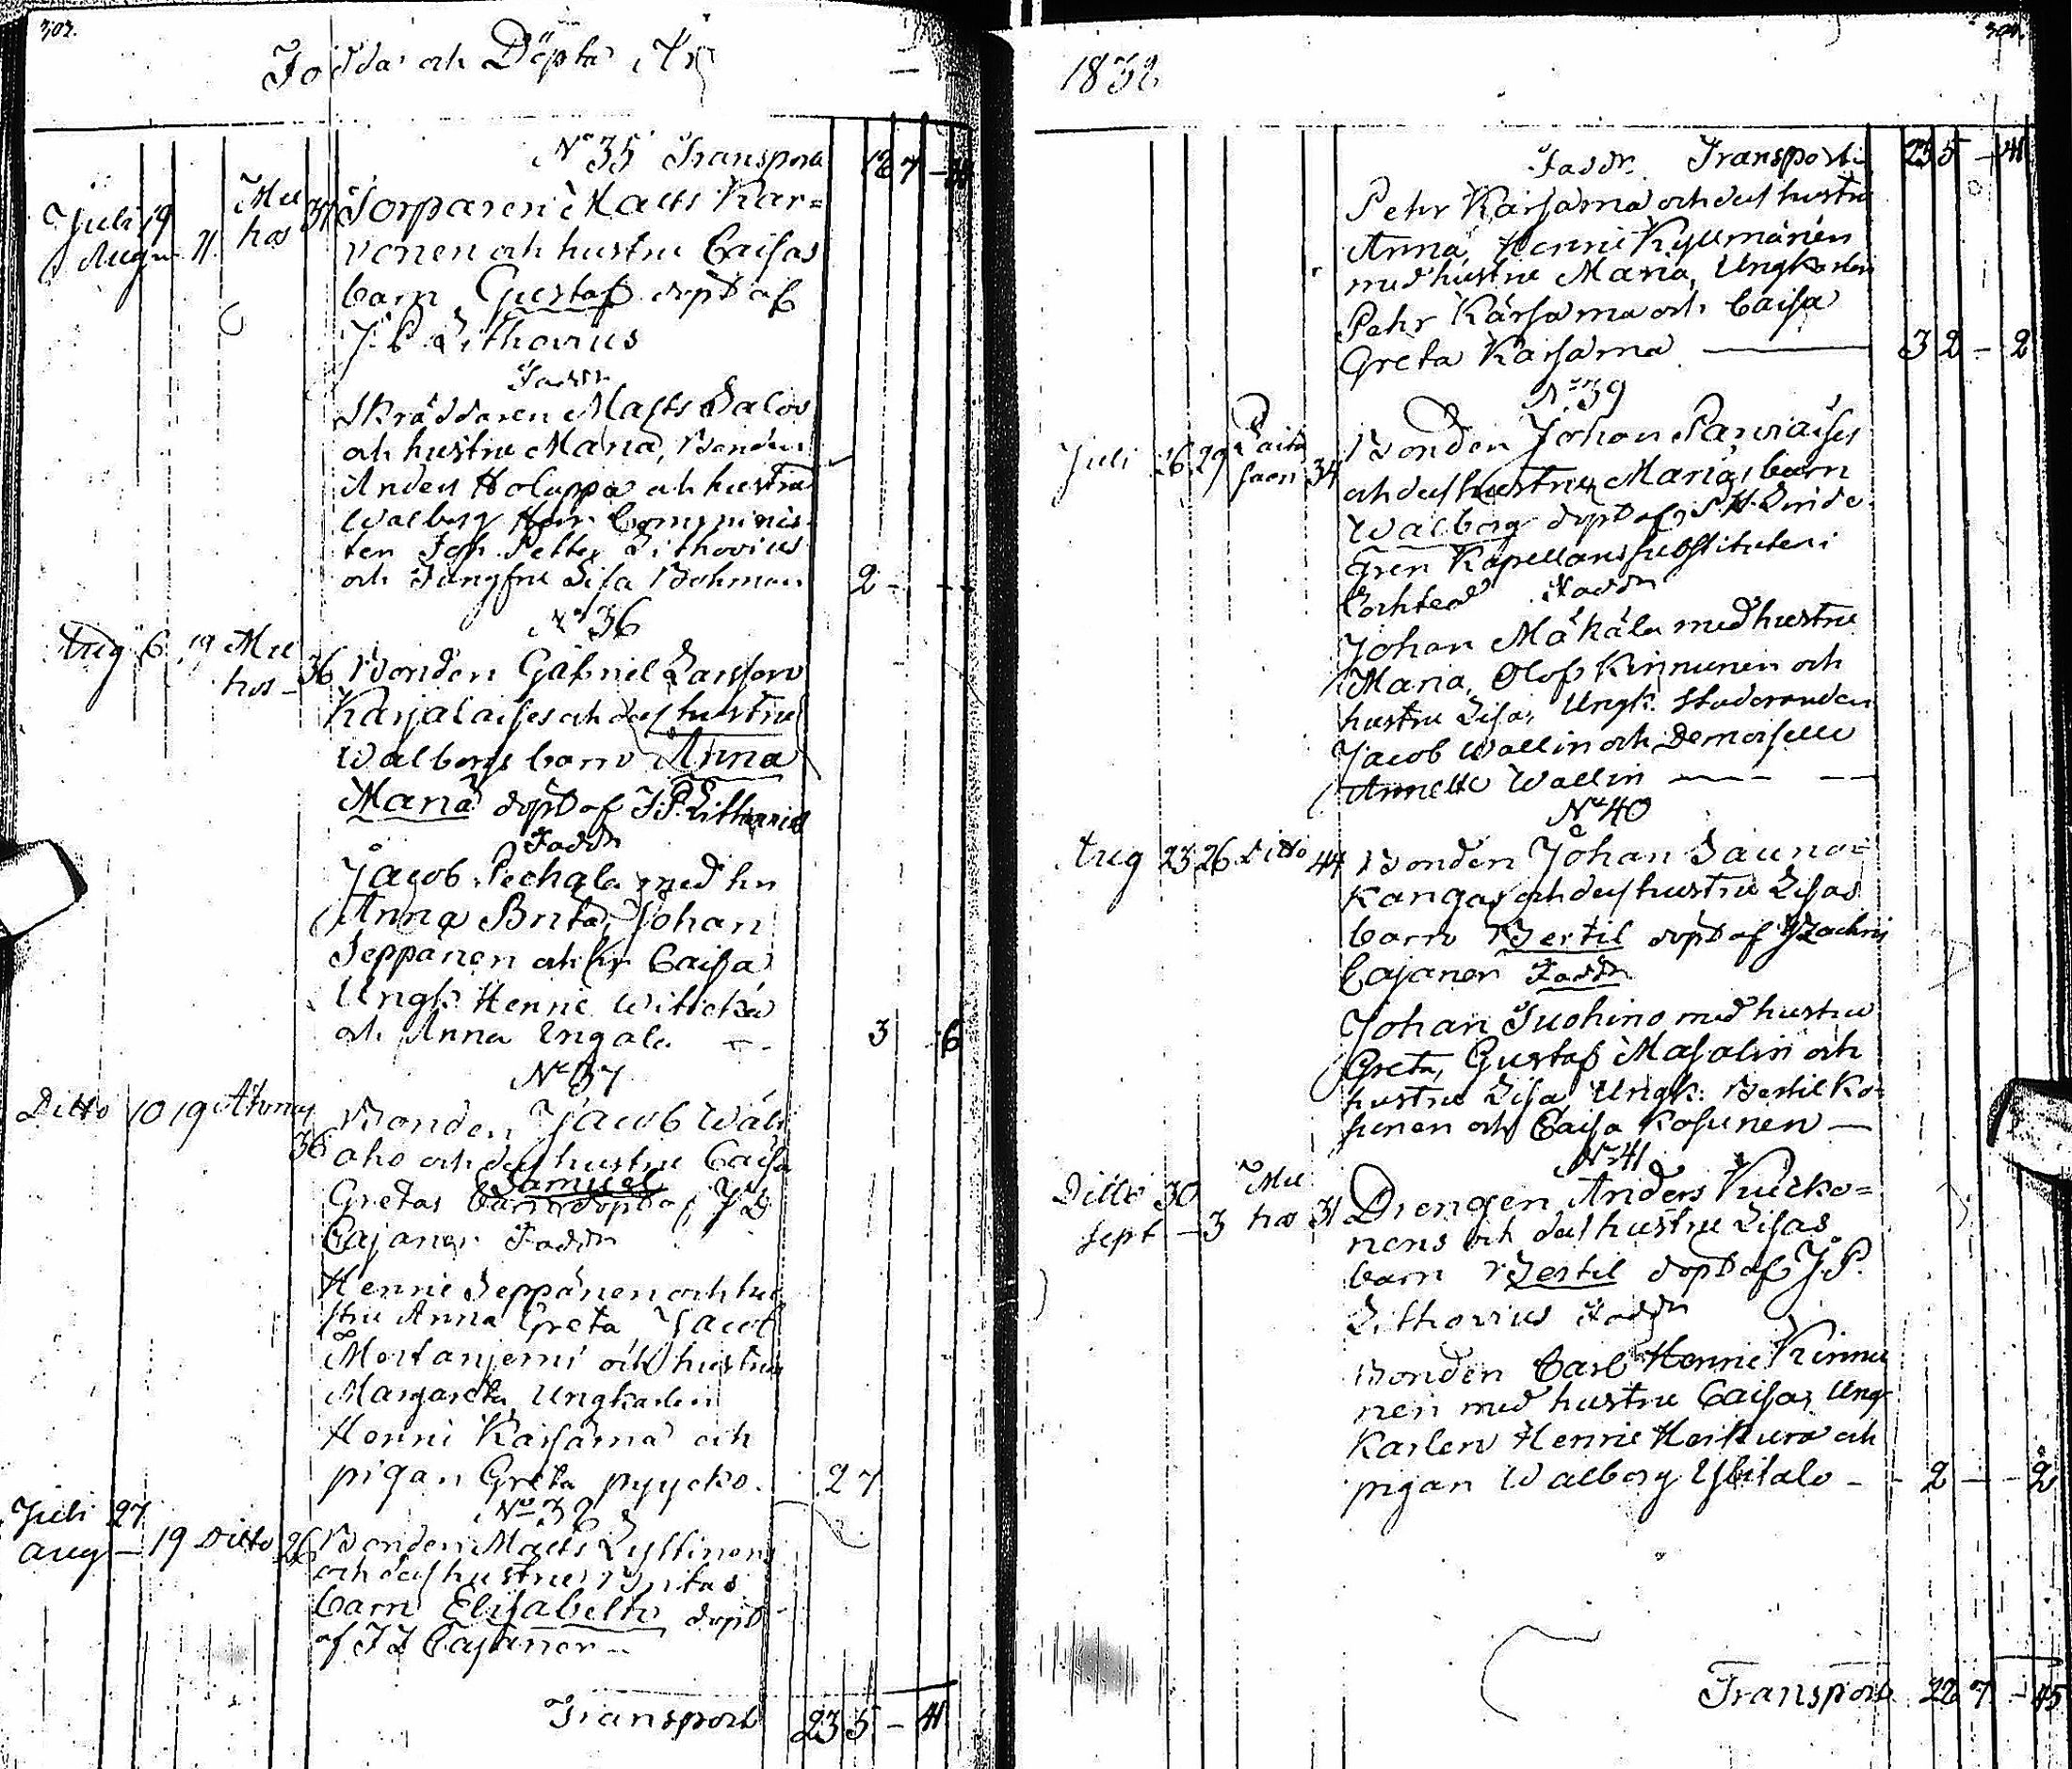 303.
Födda och Döpta År
N° 35 Transport 18 7 -
Juli 19 Mu 37 Torparen Matts Kar=
Augu 11 hos vonen och hustru Caisas
barn Gustaf döpt af
J. P. Lithovius
Faddr
Skräddaren Matts Salov
och hustru Maria, Bonden
Anders Holappa och hustru
Walborg Herr Comminis
ten Joh. Petter Lithovius
och Jungfru Lisa Bohman 2 -
N° 36
Aug 6 19 Mu 36 Bonden Gabriel Larsson
hos Karjalaises och dess hustru
Walborgs barn Anna
Maria döpt af J. P. Lithovius
Faddr
Jacob Pechala med hu
Anna Brita, Johan
Seppänen och hu Caisa
Ungk. Henric Witickä
och Anna Ungala 3 6
N° 37
Ditto 10 19 Ahmas Bonden Jacob Wäli
36 aho och dess hustru Caisa
Samuel
Gretas barn döpt af J D
Cajaner Faddr
Henric Seppänen och hu
stru Anna Greta, Jacob
Mortanjemi och hustru
Margareta, Ungkarlen
Henric Kärsämä och
pigan Greta pyycko. 2 7
N° 38
Juli 27
Aug - 19 Ditto 26 Bonden Matts Lyttinens
och dess hustru Britas
barn Elisabeth döpt
af J D Cajaner
Transport 23 5 - 41
304.
1832
Faddr. Transport 23 5 - 41
Pehr Kärsämä och dess hustru
Anna, Henric Kyllmänen
med hustru Maria, Ungkarlen
Pehr Kärsämä och Caisa
Greta Kärsämä 3 2 - 2
N° 39
Juli 26 29 34 Bonden Johan Parviaises
och dess hustru Marias barn
Walborg döpt af Linde
Gren Kapellans substituten i
Faddr
Johan Mäkälä med hustru
Maria, Olof Kinnunen och
hustru Lisa, Ungk. Studeranden
Jacob Wallin och Demoiselle
Annette Wallin
N° 40
Aug 23 26 Ditto 44 Bonden Johan Sauna=
kangas och dess hustru Lisas
barn Bertil döpt af Zachris
Cajaner Faddr
Johan Tuohino med hustru
Greta, Gustaf Masalin och
hustru Lisa Ungk. Bertil Ko=
sunen och Caisa Kosunen
N° 41
Ditto 30 Mu 31 Drengen Anders Kucko=
Sept - 3 hos nens och dess hustru Lisas
barn Bertil döpt af J. P.
Lithovius Faddr
Bonden Carl Henric Kinnu
nen med hustru Caisa, Ung
Karlen Henric Heikura och
pigan Walborg Ylitalo - 2 - 2
Transport 22 7 - 45